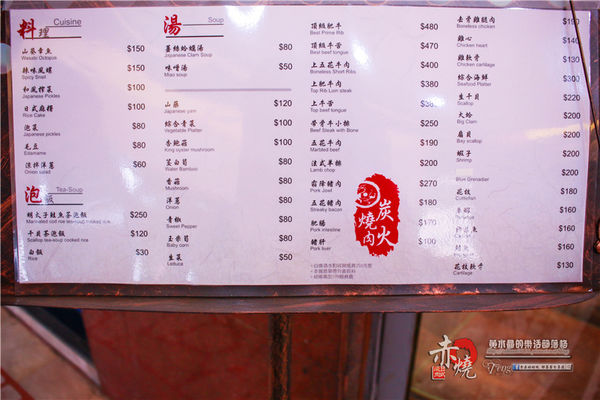 料理 Cuisine
山葵章魚 $150
Wasabi Octopus
辣味風螺 $150
Spicy Snail
和風榨菜 $100
Japanese Pickles
日式麻糬 $100
Rice Cake
泡菜 $80
Japanese pickles
毛豆 $80
Edamame
涼拌洋蔥 $60
Onion salad
泡飯 Tea-Soup
明太子鮭魚茶泡飯 $250
干貝茶泡飯 $120
Scallop tea-soup cooked rice
白飯 $30
Rice
湯 Soup
薑絲蛤蠣湯 $80
Japanese Clam Soup
味噌湯 $50
Miso soup
山藥 $120
Japanese yam
綜合青菜 $100
Vegetable Platter
杏鮑菇 $100
King oyster mushroom
茭白筍 $80
Water Bamboo
香菇 $80
Mushroom
洋蔥 $80
Onion
青椒 $80
Sweet Pepper
玉米筍 $80
Baby corn
生菜 $50
Lettuce
頂級肥牛 $480
Best Prime Rib
頂級牛舌 $470
Best beef tongue
上五花牛肉 $400
Boneless Short Ribs
上肥牛肉 $380
Top Rib Lion steak
上牛舌
Top beef tongue
帶骨牛小排 $250
Beef Steak with Bone
五花牛肉 $190
Marbled beef
法式羊排 $200
Lamb chop
霜降豬肉 $270
Pork Jowl
五花豬肉 $200
Streaky bacon
肥腸 $170
Pork intestine
豬肝 $100
Pork liver
炭火燒肉
去骨雞腿肉
Boneless chicken
雞心 $90
Chicken heart
雞軟骨 $130
Chicken cartilage
綜合海鮮 $300
Seafood platter
生干貝 $220
Scallop
大蛤 $200
Big Clam
扇貝 $200
Bay scallop
蝦子 $200
Shrimp
$200
Blue Grenadier
花枝 $160
Cuttlefish
$160
$160
$160
花枝軟骨 $130
Cartilage
赤燒
黃水晶的樂活部落格